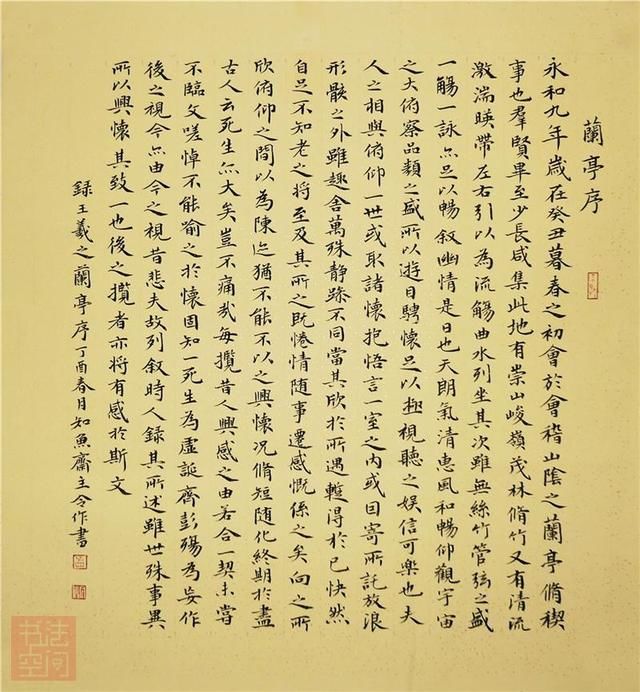 蘭亭序
永和九年歲在癸丑暮春之初會於會稽山陰之蘭亭脩稧
事也羣賢畢至少長咸集此地有崇山峻嶺茂林脩竹又有清流
激湍暎帶左右引以為流觴曲水列坐其次雖無絲竹管弦之盛
一觴一詠亦足以暢叙幽情是日也天朗氣清惠風和暢仰觀宇宙
之大俯察品類之盛所以遊目騁懷足以極視聽之娱信可樂也夫
人之相與俯仰一世或取諸懷抱悟言一室之内或因寄所託放浪
形骸之外雖趣舍萬殊静躁不同當其欣於所遇蹔得於己快然
自足不知老之将至及其所之既惓情随事遷感慨係之矣向之所
欣俯仰之間以為陳迹猶不能不以之興懷况脩短随化終期於盡
古人云死生亦大矣豈不痛哉每攬昔人興感之由若合一契未嘗
不臨文嗟悼不能喻之於懷固知一死生為虚誕齊彭殤為妄作
後之視今亦由今之視昔悲夫故列叙時人録其所述雖世殊事異
所以興懷其致一也後之攬者亦将有感於斯文
録王羲之蘭亭序丁酉春月知魚齋主令作書
书法
空间